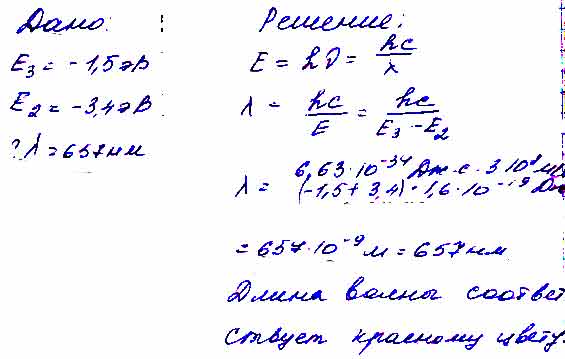 Дано:
E₃ = -1,5эВ
E₂ = -3,4эВ
? λ = 657нм
Решение:
E = hν = hc/λ
λ = hc/E = hc/(E₃ - E₂)
λ = 6,63·10⁻³⁴Дж·с·3·10⁸м/
(-1,5+3,4)·1,6·10⁻¹⁹Дж
= 657·10⁻⁹м = 657нм
Длина волны соответ
ствует красному цвету.